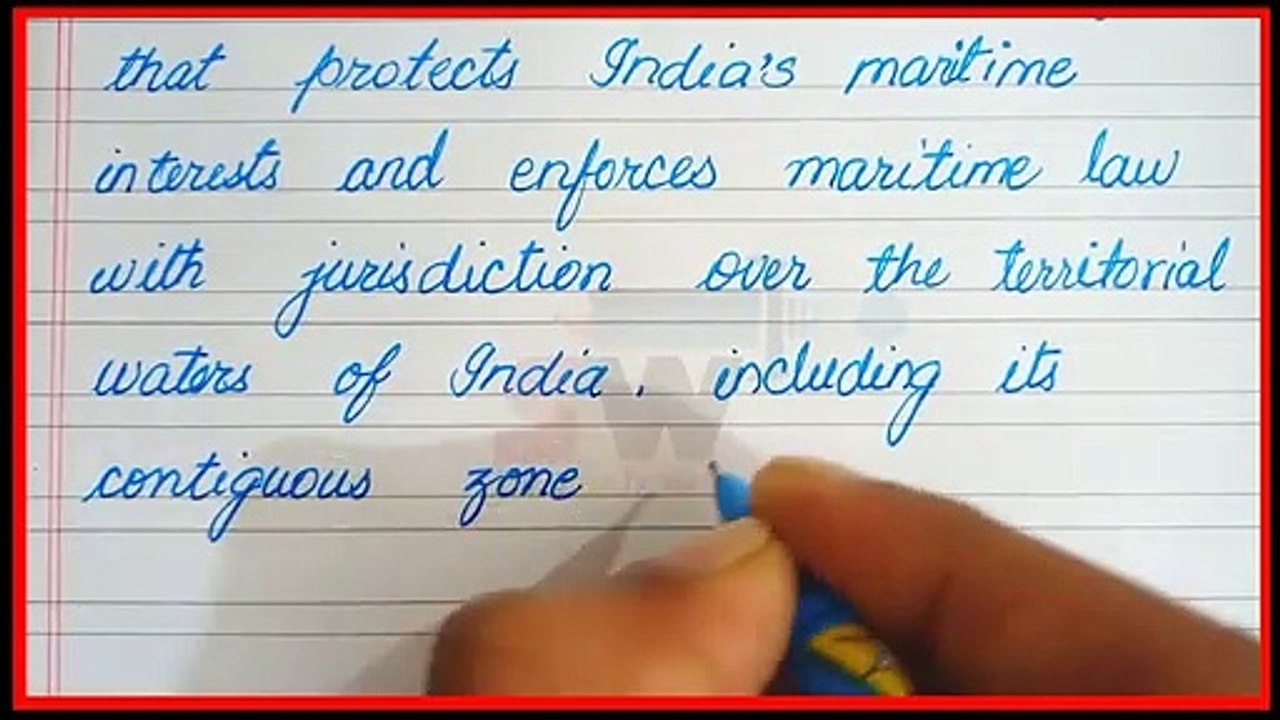 that protects India's maritime
interests and enforces maritime law
with jurisdiction over the territorial
waters of India. including its
contiguous zone
W